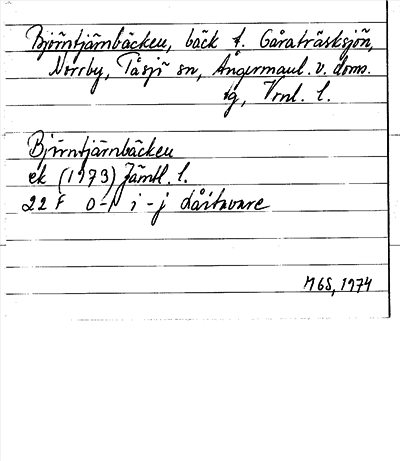 Björntjärnbäcken, bäck t. Gåraträsksjön,
Norrby, Tåsjö sn, Ångermanl. v. doms.
sg, Vrnl. l.
Björntjärnbäcken
ek (1973) Jämtl. l.
22 F 0-1 i-j
MGS, 1974